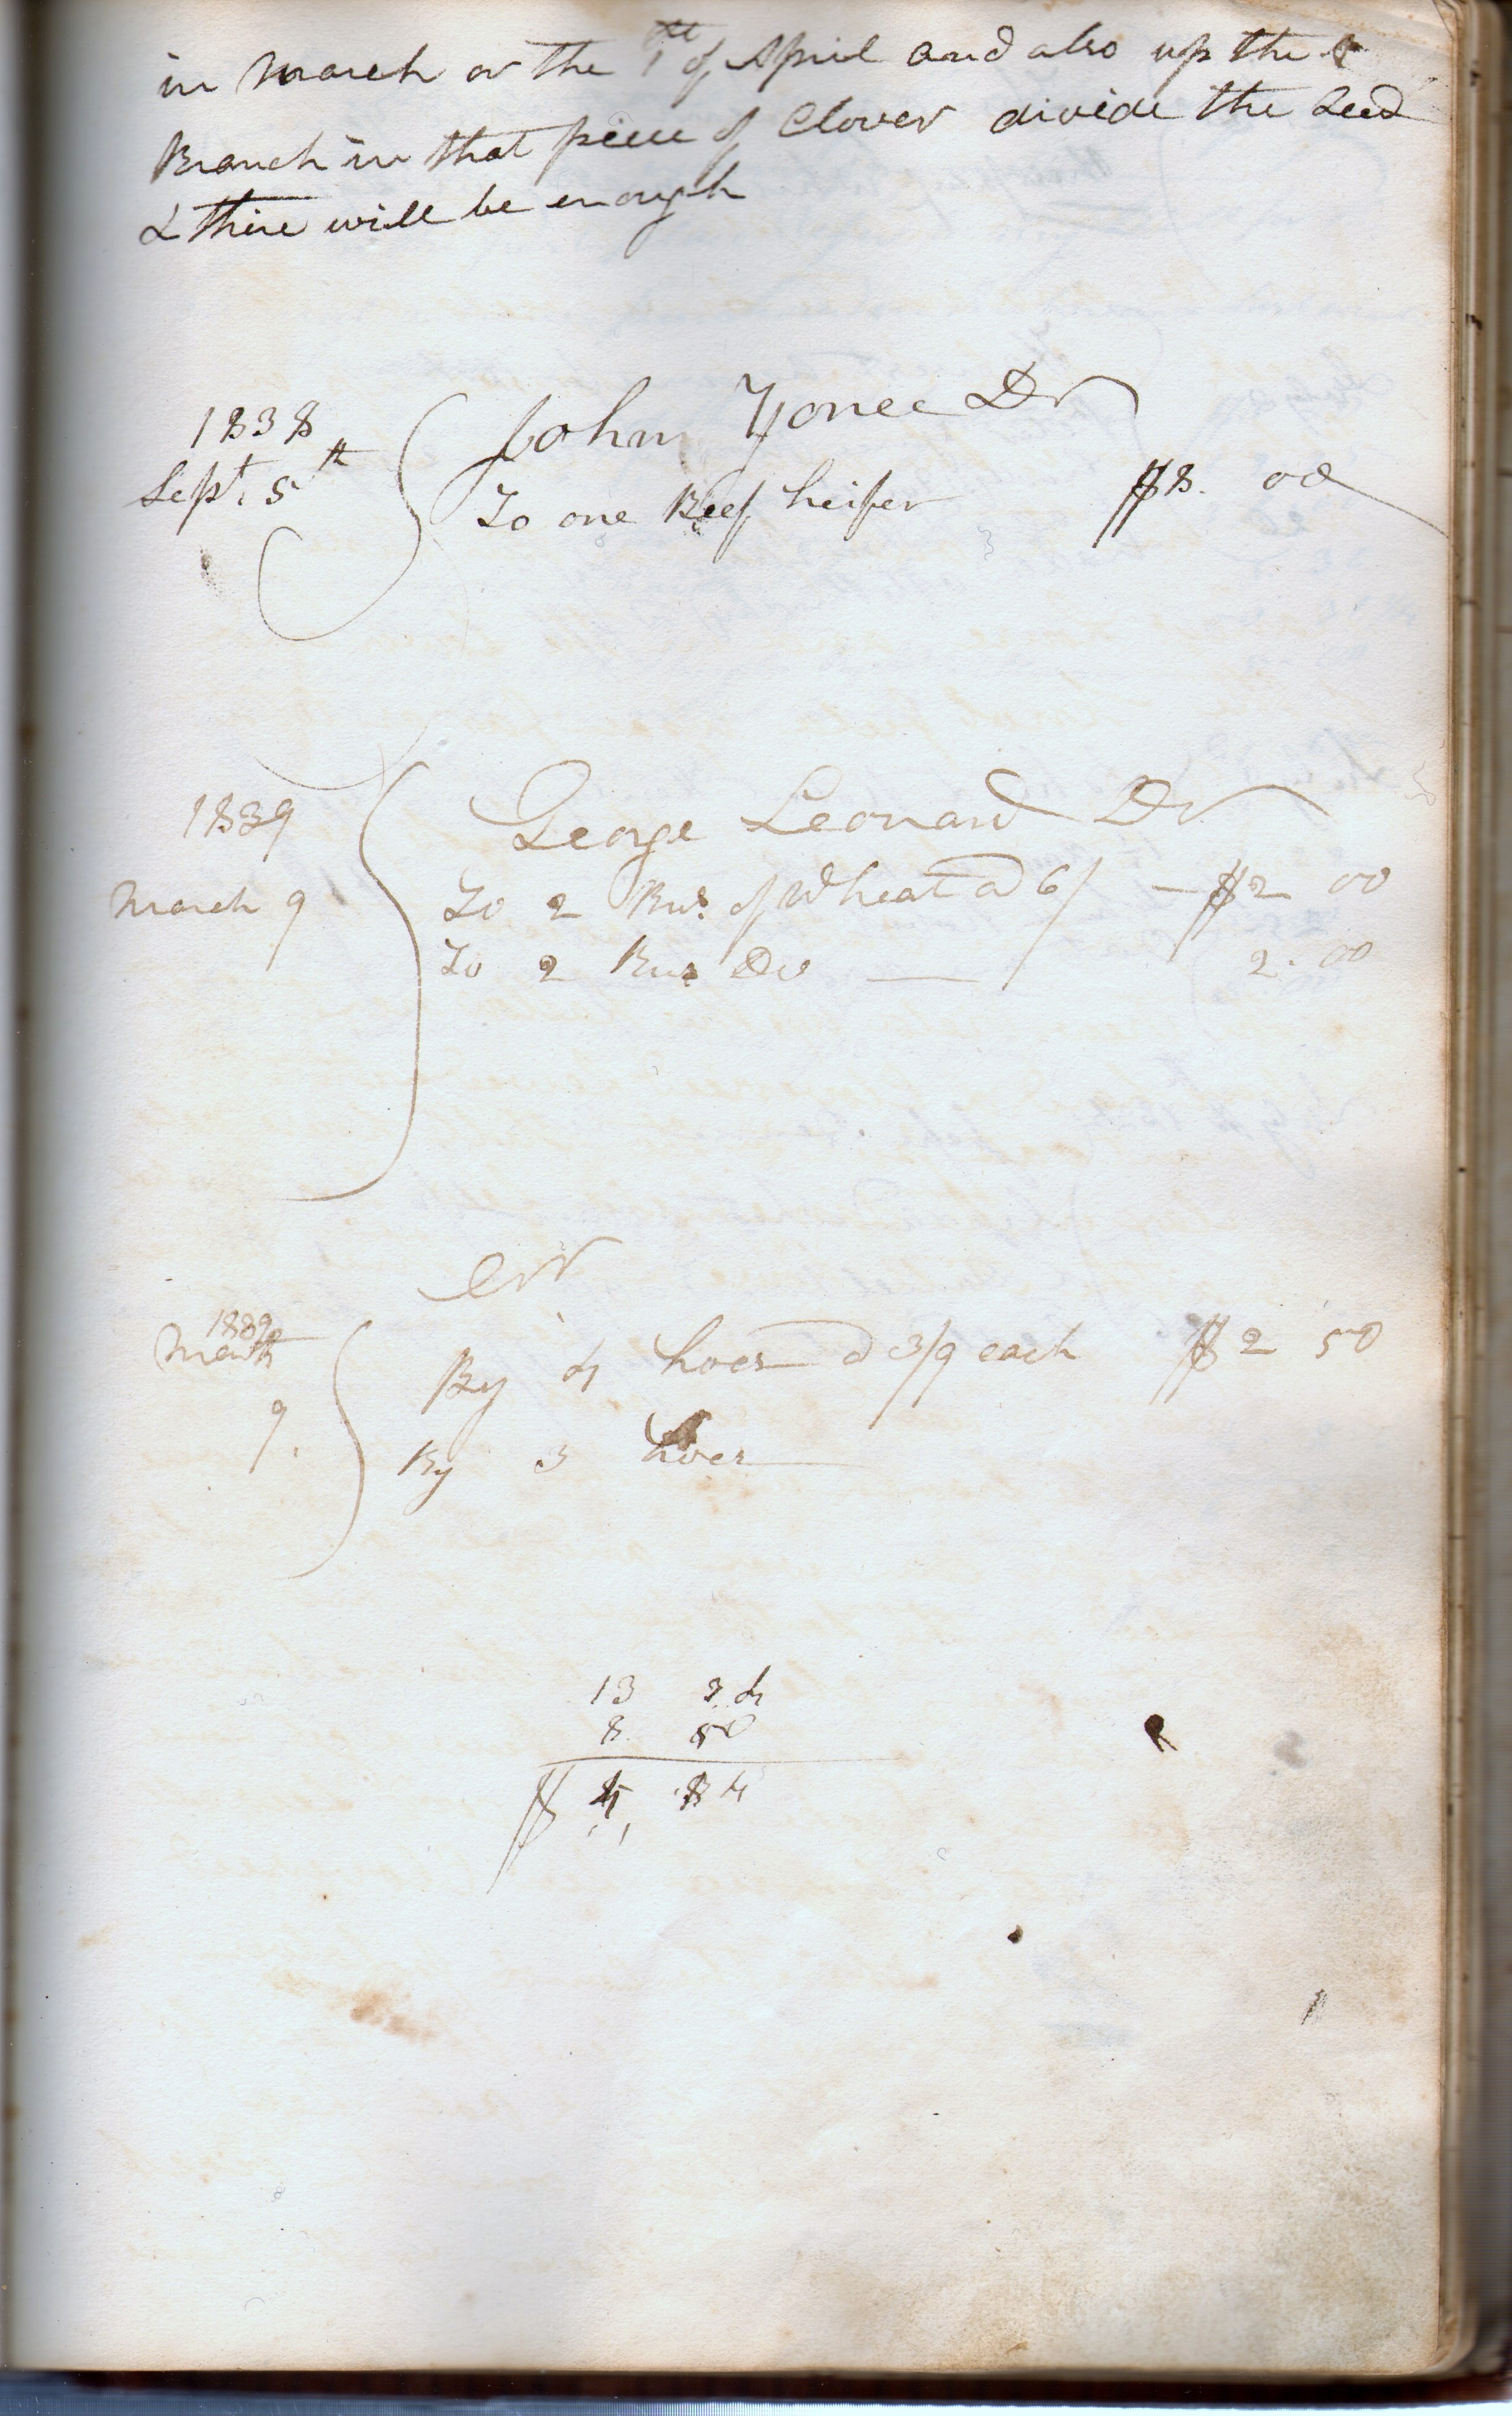 in March or the 1st of April and also up the
Branch in that piece of Clover divide the Seed
& there will be enough
1838
Sept. 5th
John Yonee Dr
To one Beef heifer $8. 00
1839
March 9
George Leonard Dr
To 2 Bus. of Wheat a 6/ — $2 00
To 2 Bus Do — 2.00
Crr
1839
March
9.
By 4 hoes a 3/9 each $2 50
By 3 hoes
13 34
8 50
$ 4 84